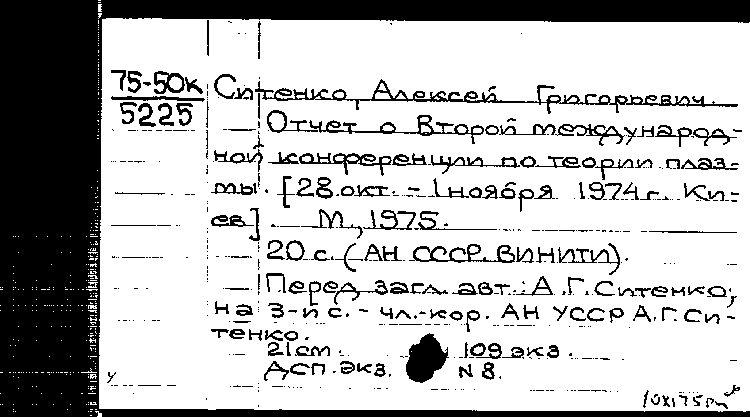 75-50к
5225
Ситенко, Алексей Григорьевич.
Отчет о Второй международ-
ной конференции по теории плаз-
мы. [28 окт. - 1 ноября 1974 г. Ки-
ев]. М., 1975.
20 с. (АН СССР. ВИНИТИ).
Перед загл. авт.: А.Г. Ситенко;
на 3-й с. - чл.-кор. АН УССР А.Г. Си-
тенко.
21 см. 109 экз.
ДСП. экз. N 8.